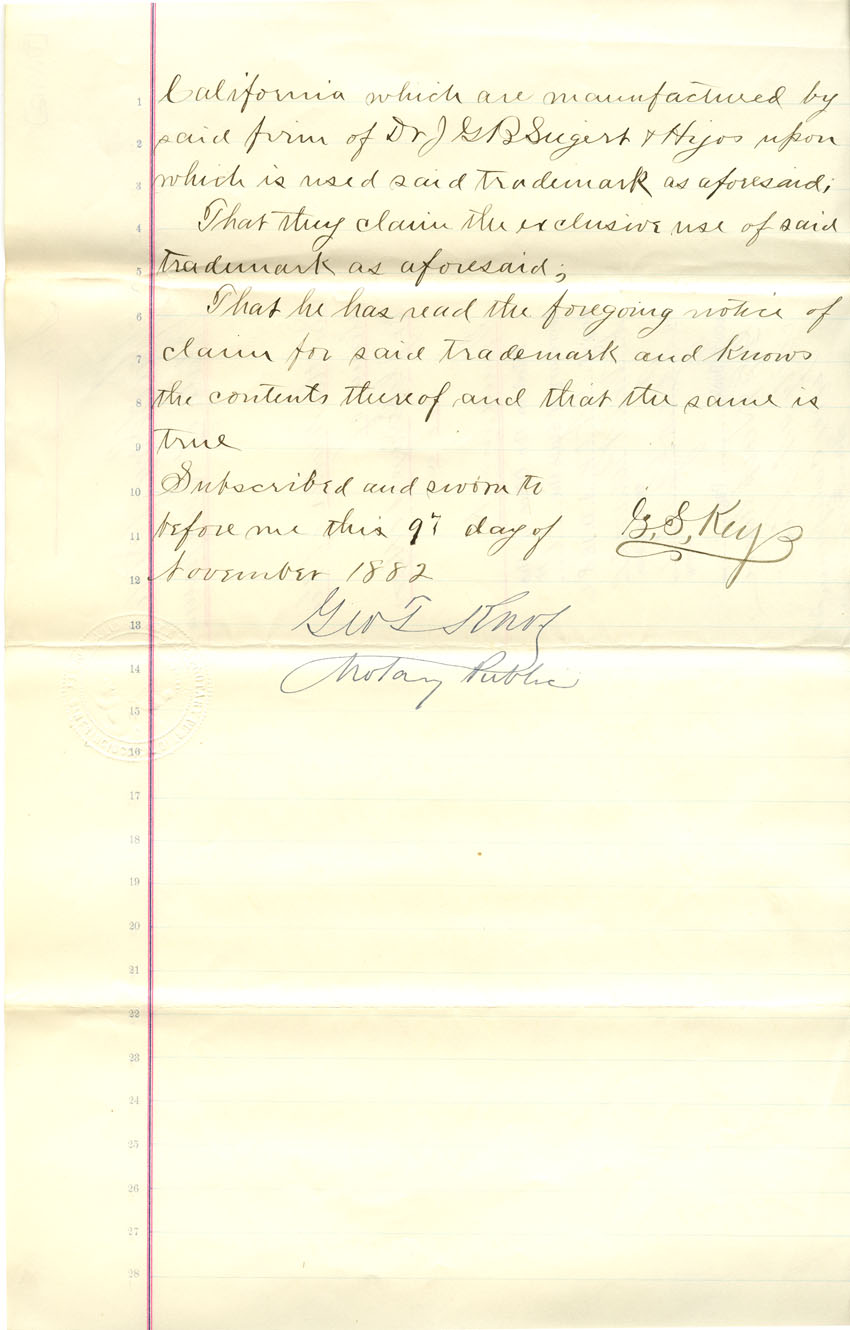 1 California which are manufactured by
2 said firm of Dr J G B Siegert & Hijos upon
3 which is used said trademark as aforesaid;
4 That they claim the exclusive use of said
5 trademark as aforesaid;
6 That he has read the foregoing notice of
7 claim for said trademark and knows
8 the contents thereof and that the same is
9 true
10 Subscribed and sworn to
11 before me this 9th day of G. S. Key
12 November 1882
13 Geo T Knox
14 Notary Public
15
16
17
18
19
20
21
22
23
24
25
26
27
28